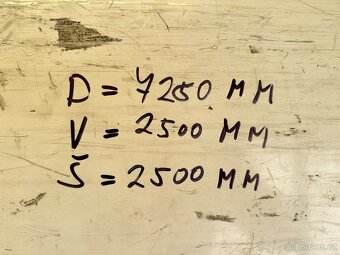 D = 7250 MM
V = 2500 MM
Š = 2500 MM